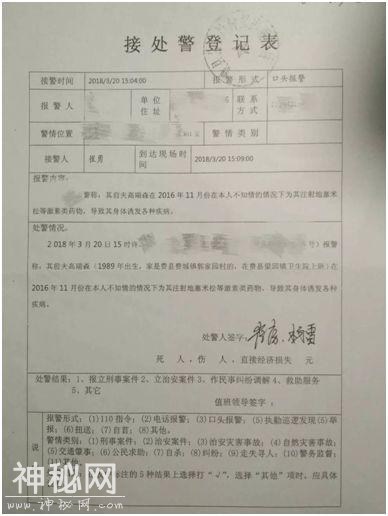 接处警登记表
接警时间 2018/3/20 15:04:00 报警形式 口头报警
报警人 单位住址 联系方式
警情位置 警情类别
接警人 崔勇 到达现场时间 2018/3/20 15:09:00
报警内容:
警称:其前夫高瑞森在2016年11月份在本人不知情的情况下为其注射地塞米
松等激素类药物,导致其身体诱发各种疾病。
处警情况:
2018年3月20日15时许 号)报警
称:其前夫高瑞森(1989年出生,家是费县费城镇郭家园村的,在费县梁邱镇卫生院上班)在
2016年11月份在本人不知情的情况下为其注射地塞米松等激素类药物,导致其身体诱发各种
疾病。
处警人签字:
死 人,伤 人,直接经济损失 元
处警结果:1、报立刑事案件 2、立治安案件 3、作民事纠纷调解 4、救助服务
5、其它
值班领导签字:
说
报警形式:(1)110指令;(2)电话报警;(3)口头报警;(5)执勤巡逻发现(5)举
报;(6)扭送;(7)自首;(8)其他。
警情类别:(1)刑事案件;(2)治安案件;(3)治安灾害事故;(4)自然灾害事故;
(5)交通肇事;(6)公民求助;(7)自杀;(8)纠纷;(9)走失寻人;(10)警务监督;
(11)其他
标注的5种结果上选择打“√”,选择“其他”项时,应具体
神秘网
www.神秘网.com